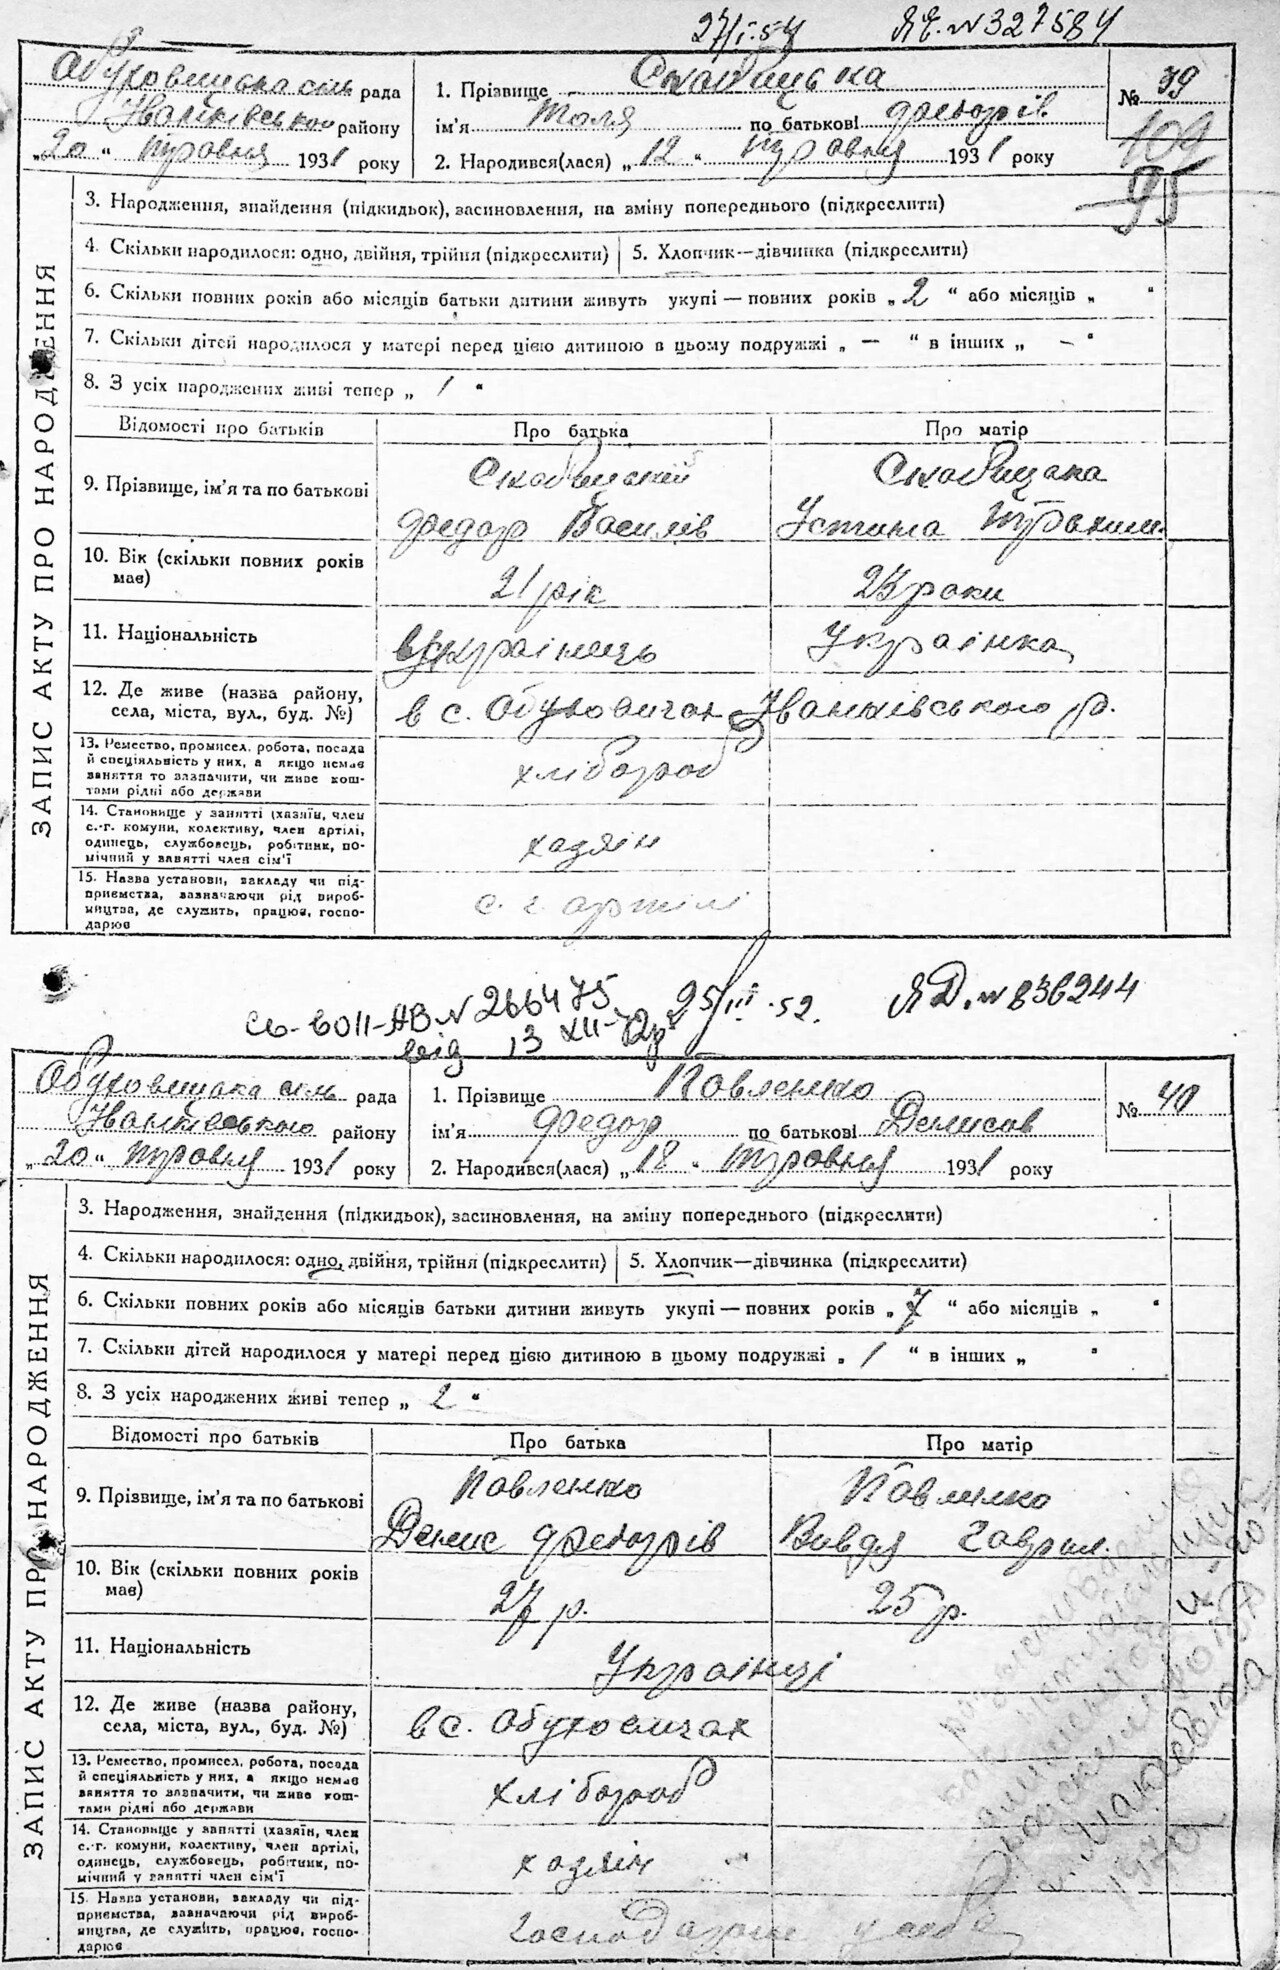 27/I-54 ЯЄ. N 327584
Обуховицька сіль рада
Іванківського району
„20" травня 1931 року
1. Прізвище Скабицька
ім'я Толя по батькові Федорів
2. Народився(лася) „12" травня 1931 року
№ 39
109
95
ЗАПИС АКТУ ПРО НАРОДЖЕННЯ
3. Народження, знайдення (підкидьок), засиновлення, на зміну попереднього (підкреслити)
4. Скільки народилося: одно, двійня, трійня (підкреслити) 5. Хлопчик—дівчинка (підкреслити)
6. Скільки повних років або місяців батьки дитини живуть укупі — повних років „2" або місяців „ "
7. Скільки дітей народилося у матері перед цією дитиною в цьому подружжі „ — " в інших „ — "
8. З усіх народжених живі тепер „ 1 "
Відомості про батьків Про батька Про матір
9. Прізвище, ім'я та по батькові
Скабицький Скабицька
Федор Василів Устина
10. Вік (скільки повних років має) 21 рік 23 роки
11. Національність українець Українка
12. Де живе (назва району, села, міста, вул., буд. №) в с. Обуховичах Іванківського р.
13. Ремество, промисел, робота, посада
й спеціяльність у них, а якщо немає
заняття то зазначити, чи живе кош-
тами рідні або держави
хлібороб
14. Становище у занятті (хазяїн, член
с.-г. комуни, колективу, член артілі,
одинець, службовець, робітник, по-
мічний у занятті член сім'ї
хазяін
15. Назва установи, закладу чи під-
приємства, зазначаючи рід вироб-
ництва, де служить, працює, госпо-
дарює
с. г. артілі
Св-во II-АВ N 266475
від 13 XII-
25/III-52. ЯД. N 836244
Обуховицька сіль рада
Іванківського району
„20" травня 1931 року
1. Прізвище Павленко
ім'я Федор по батькові Денисов
2. Народився(лася) „18" травня 1931 року
№ 40
ЗАПИС АКТУ ПРО НАРОДЖЕННЯ
3. Народження, знайдення (підкидьок), засиновлення, на зміну попереднього (підкреслити)
4. Скільки народилося: одно, двійня, трійня (підкреслити) 5. Хлопчик—дівчинка (підкреслити)
6. Скільки повних років або місяців батьки дитини живуть укупі — повних років „7" або місяців „ "
7. Скільки дітей народилося у матері перед цією дитиною в цьому подружжі „ 1 " в інших „ "
8. З усіх народжених живі тепер „ 2 "
Відомості про батьків Про батька Про матір
9. Прізвище, ім'я та по батькові
Павленко Павленко
Денис Федорів Вивдя Гаврил.
10. Вік (скільки повних років має) 27 р. 25 р.
11. Національність Українці
12. Де живе (назва району, села, міста, вул., буд. №) в с. Обуховичах
13. Ремество, промисел, робота, посада
й спеціяльність у них, а якщо немає
заняття то зазначити, чи живе кош-
тами рідні або держави
хлібороб
14. Становище у занятті (хазяїн, член
с.-г. комуни, колективу, член артілі,
одинець, службовець, робітник, по-
мічний у занятті член сім'ї
хазяін
15. Назва установи, закладу чи під-
приємства, зазначаючи рід вироб-
ництва, де служить, працює, госпо-
дарює
господарює у себе